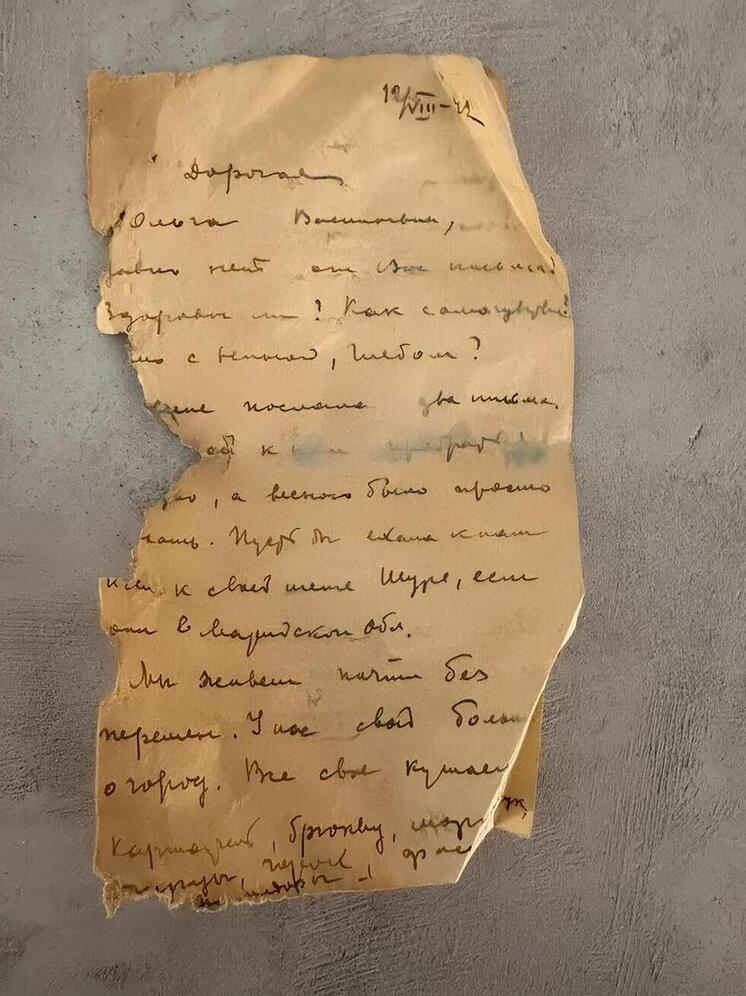 12/VIII-42
Дорогая
Ольга Васильевна,
давно нет от Вас письма!
Здоровы ли? Как самочувствие?
с Глебом?
послала два письма.
к
, а весною было просто
. Пусть бы ехала к нам
или к своей тете Шуре, если
они в Марийской обл.
Мы живем почти без
перемен. У нас свой больш
огород. Все свое кушаем
картофель, брюкву, мор
огурцы, горох, фас
помидоры